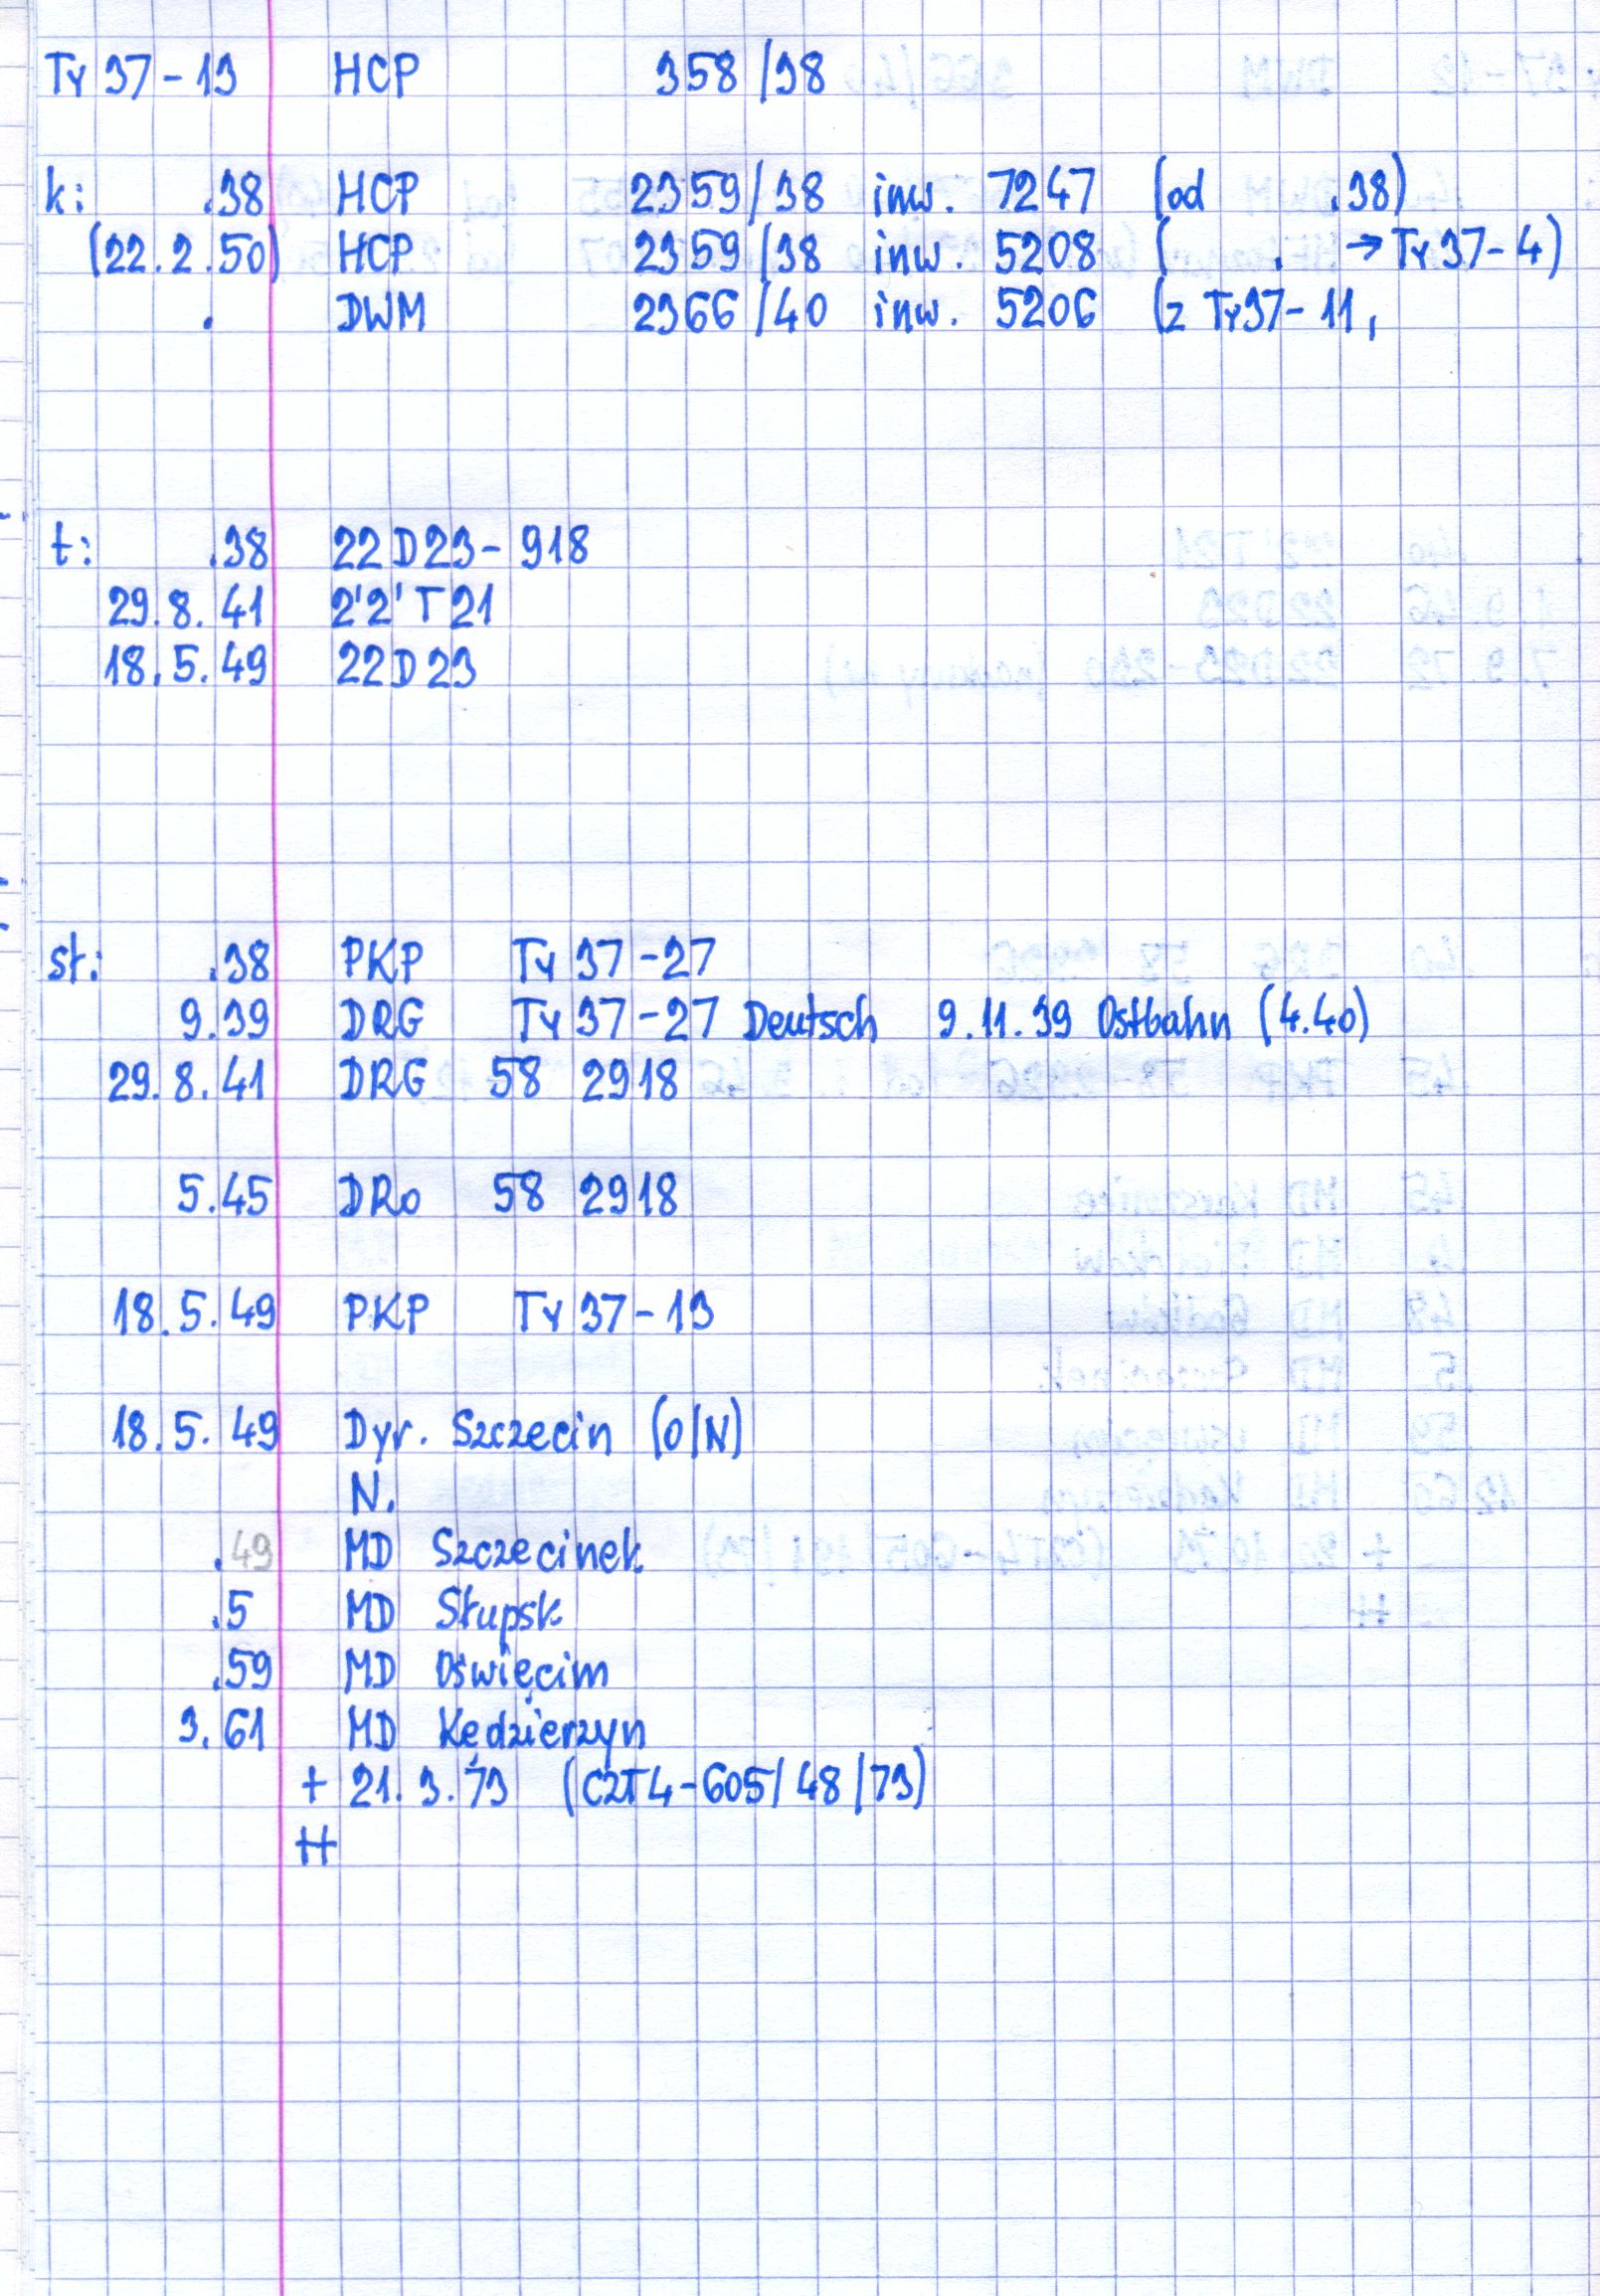 Ty 37-13 HCP 358/38
k: .38 HCP 2359/38 inw. 7247 (od .38)
(22.2.50) HCP 2359/38 inw. 5208 ( . → Ty 37-4)
. DWM 2366/40 inw. 5206 (z Ty37-11,
t: .38 22D23-918
29.8.41 2'2'T21
18.5.49 22D23
st: .38 PKP Ty 37-27
9.39 DRG Ty 37-27 Deutsch 9.11.39 Ostbahn (4.40)
29.8.41 DRG 58 2918
5.45 DRo 58 2918
18.5.49 PKP Ty 37-13
18.5.49 Dyr. Szczecin (O/N)
N.
.49 MD Szczecinek
.5 MD Słupsk
.59 MD Oświęcim
3.61 MD Kędzierzyn
+ 21.3.73 (CZT4-605/48/73)
++